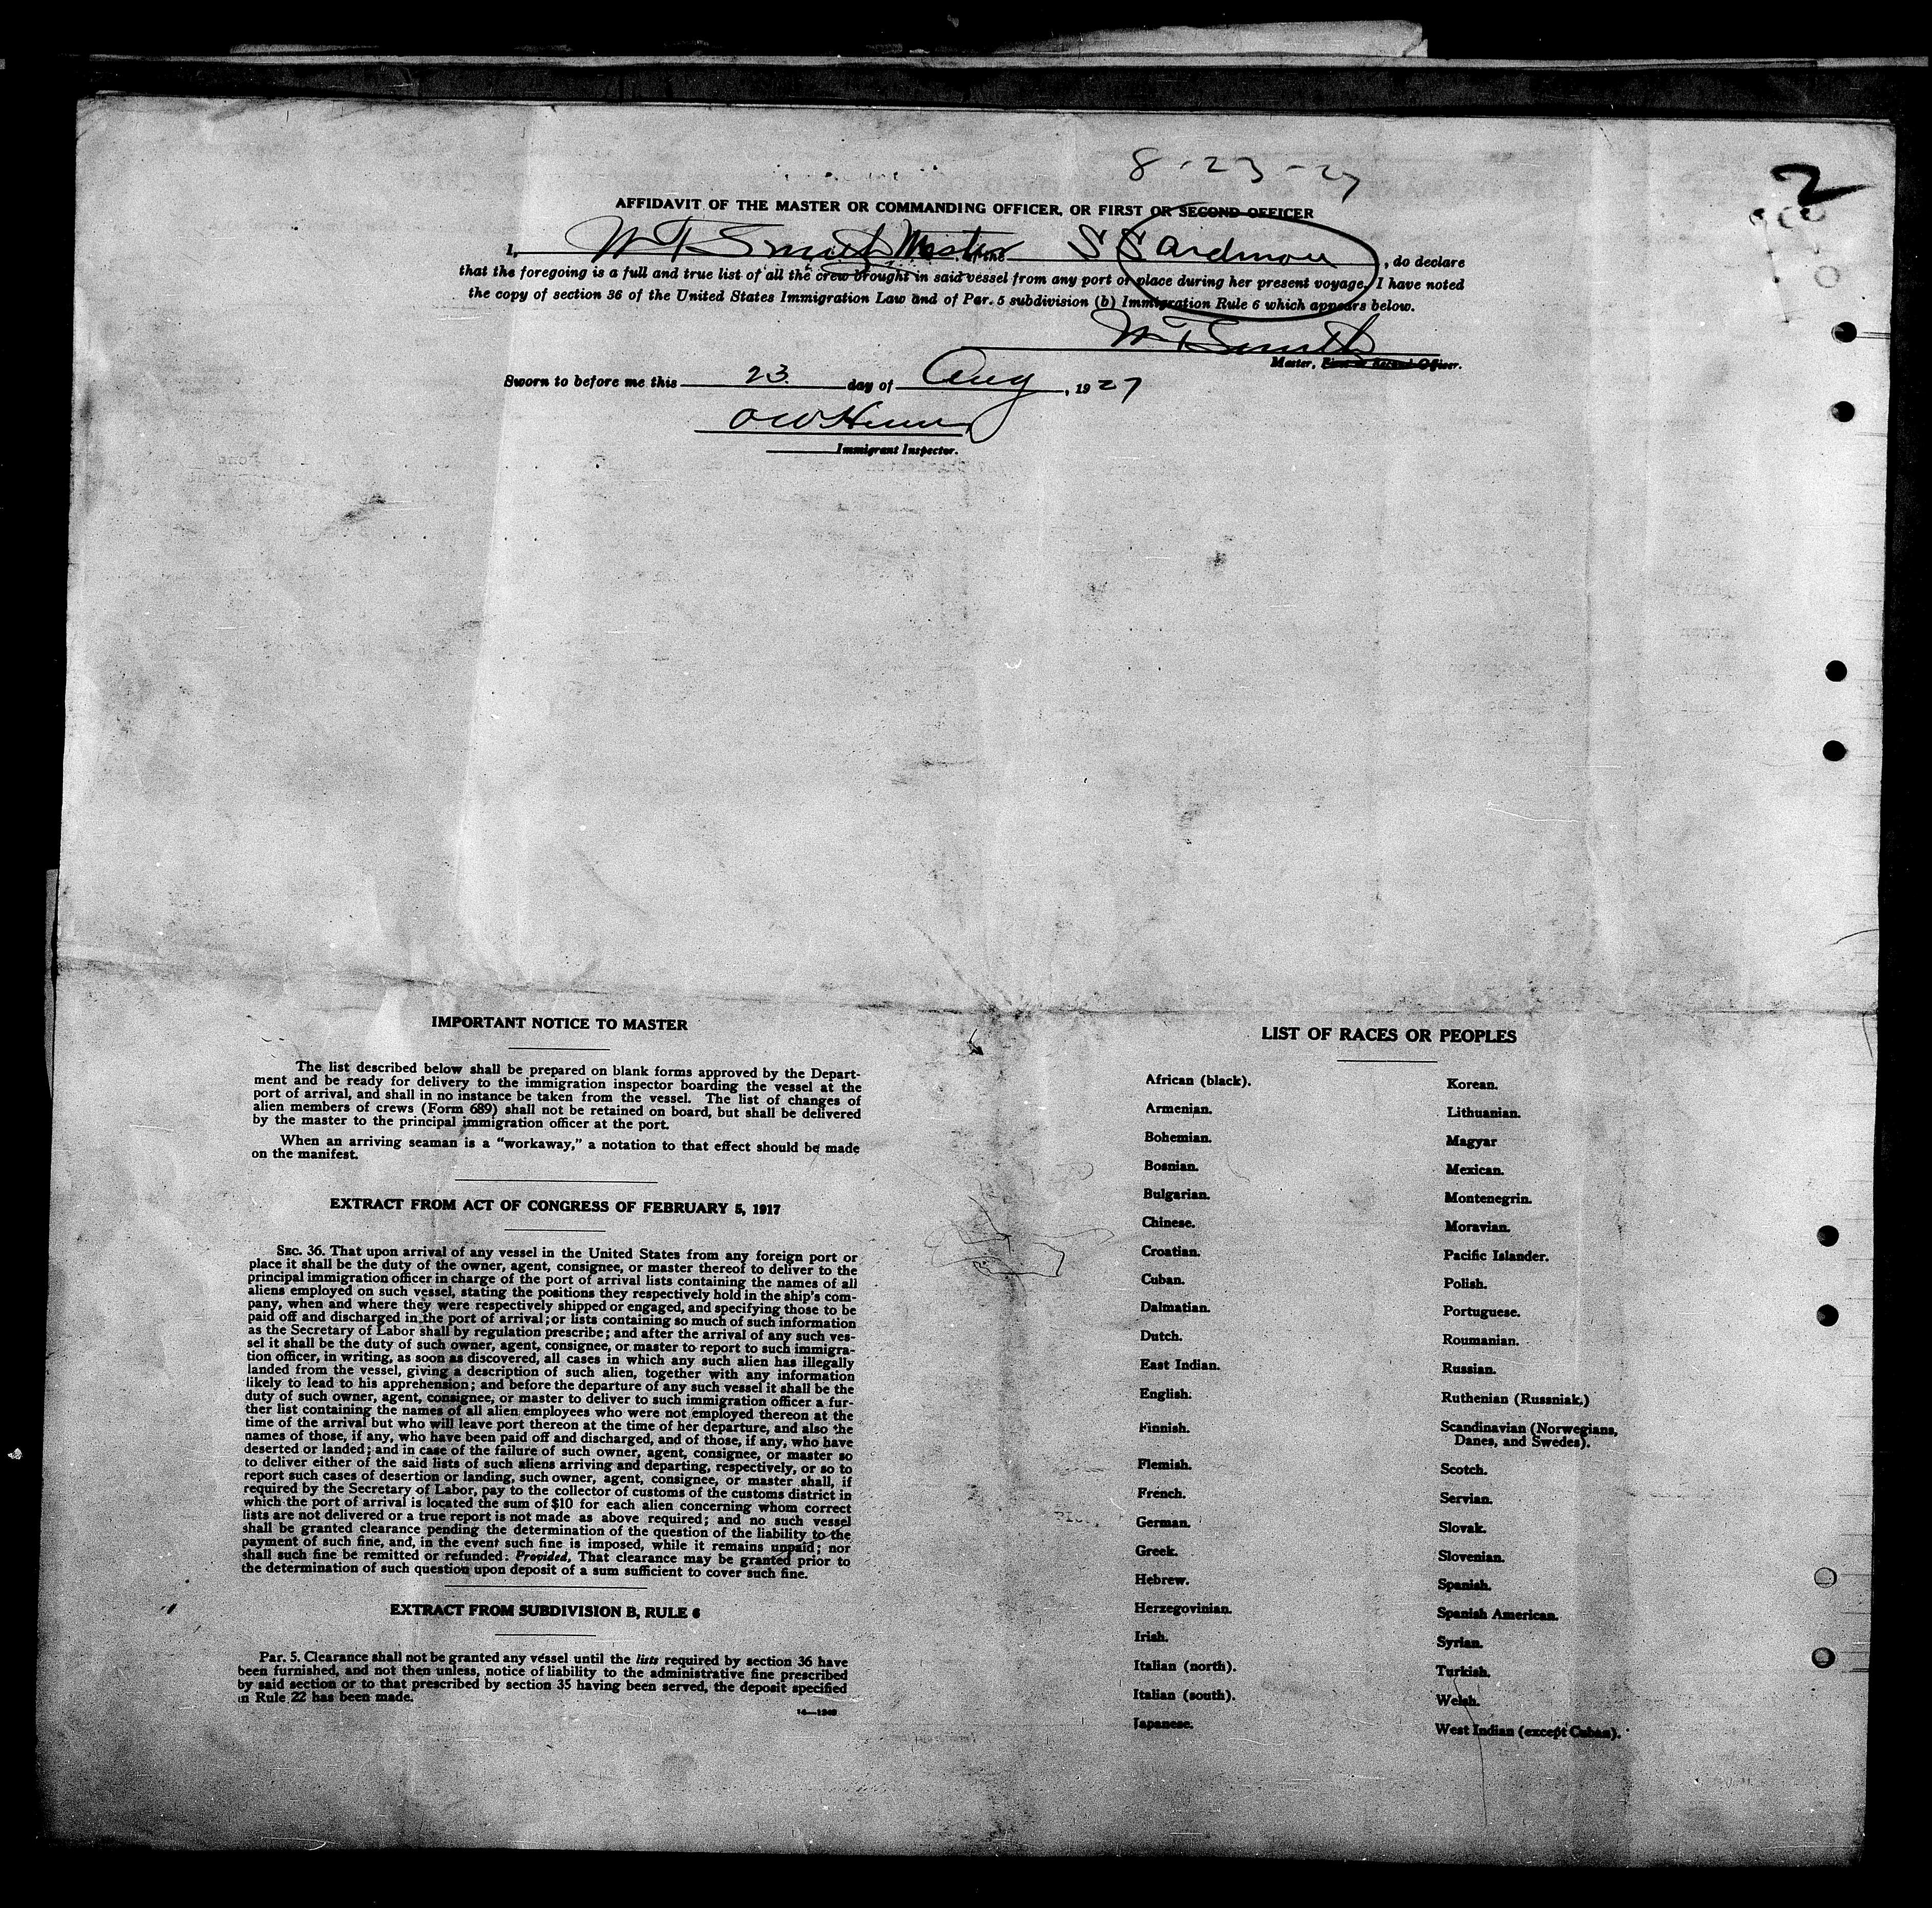 8-23-27
2
AFFIDAVIT OF THE MASTER OR COMMANDING OFFICER, OR FIRST OR SECOND OFFICER
I, W T Smith Master of the S S Ardmore, do declare
that the foregoing is a full and true list of all the crew brought in said vessel from any port or place during her present voyage. I have noted
the copy of section 36 of the United States Immigration Law and of Par. 5 subdivision (b) Immigration Rule 6 which appears below.
W T Smith
Master, First or Second Officer.
Sworn to before me this 23 day of Aug, 1927
Immigrant Inspector.
IMPORTANT NOTICE TO MASTER
The list described below shall be prepared on blank forms approved by the Depart-
ment and be ready for delivery to the immigration inspector boarding the vessel at the
port of arrival, and shall in no instance be taken from the vessel. The list of changes of
alien members of crews (Form 689) shall not be retained on board, but shall be delivered
by the master to the principal immigration officer at the port.
When an arriving seaman is a "workaway," a notation to that effect should be made
on the manifest.
EXTRACT FROM ACT OF CONGRESS OF FEBRUARY 5, 1917
SEC. 36. That upon arrival of any vessel in the United States from any foreign port or
place it shall be the duty of the owner, agent, consignee, or master thereof to deliver to the
principal immigration officer in charge of the port of arrival lists containing the names of all
aliens employed on such vessel, stating the positions they respectively hold in the ship's com-
pany, when and where they were respectively shipped or engaged, and specifying those to be
paid off and discharged in the port of arrival; or lists containing so much of such information
as the Secretary of Labor shall by regulation prescribe; and after the arrival of any such ves-
sel it shall be the duty of such owner, agent, consignee, or master to report to such immigra-
tion officer, in writing, as soon as discovered, all cases in which any such alien has illegally
landed from the vessel, giving a description of such alien, together with any information
likely to lead to his apprehension; and before the departure of any such vessel it shall be the
duty of such owner, agent, consignee, or master to deliver to such immigration officer a fur-
ther list containing the names of all alien employees who were not employed thereon at the
time of the arrival but who will leave port thereon at the time of her departure, and also the
names of those, if any, who have been paid off and discharged, and of those, if any, who have
deserted or landed; and in case of the failure of such owner, agent, consignee, or master so
to deliver either of the said lists of such aliens arriving and departing, respectively, or so to
report such cases of desertion or landing, such owner, agent, consignee, or master shall, if
required by the Secretary of Labor, pay to the collector of customs of the customs district in
which the port of arrival is located the sum of $10 for each alien concerning whom correct
lists are not delivered or a true report is not made as above required; and no such vessel
shall be granted clearance pending the determination of the question of the liability to the
payment of such fine, and, in the event such fine is imposed, while it remains unpaid; nor
shall such fine be remitted or refunded: Provided, That clearance may be granted prior to
the determination of such question upon deposit of a sum sufficient to cover such fine.
EXTRACT FROM SUBDIVISION B, RULE 6
Par. 5. Clearance shall not be granted any vessel until the lists required by section 36 have
been furnished, and not then unless, notice of liability to the administrative fine prescribed
by said section or to that prescribed by section 35 having been served, the deposit specified
in Rule 22 has been made.
LIST OF RACES OR PEOPLES
African (black).
Armenian.
Bohemian.
Bosnian.
Bulgarian.
Chinese.
Croatian.
Cuban.
Dalmatian.
Dutch.
East Indian.
English.
Finnish.
Flemish.
French.
German.
Greek.
Hebrew.
Herzegovinian.
Irish.
Italian (north).
Italian (south).
Japanese.
Korean.
Lithuanian.
Magyar
Mexican.
Montenegrin.
Moravian.
Pacific Islander.
Polish.
Portuguese.
Roumanian.
Russian.
Ruthenian (Russniak.)
Scandinavian (Norwegians,
Danes, and Swedes).
Scotch.
Servian.
Slovak.
Slovenian.
Spanish.
Spanish American.
Syrian.
Turkish.
Welsh.
West Indian (except Cuban).